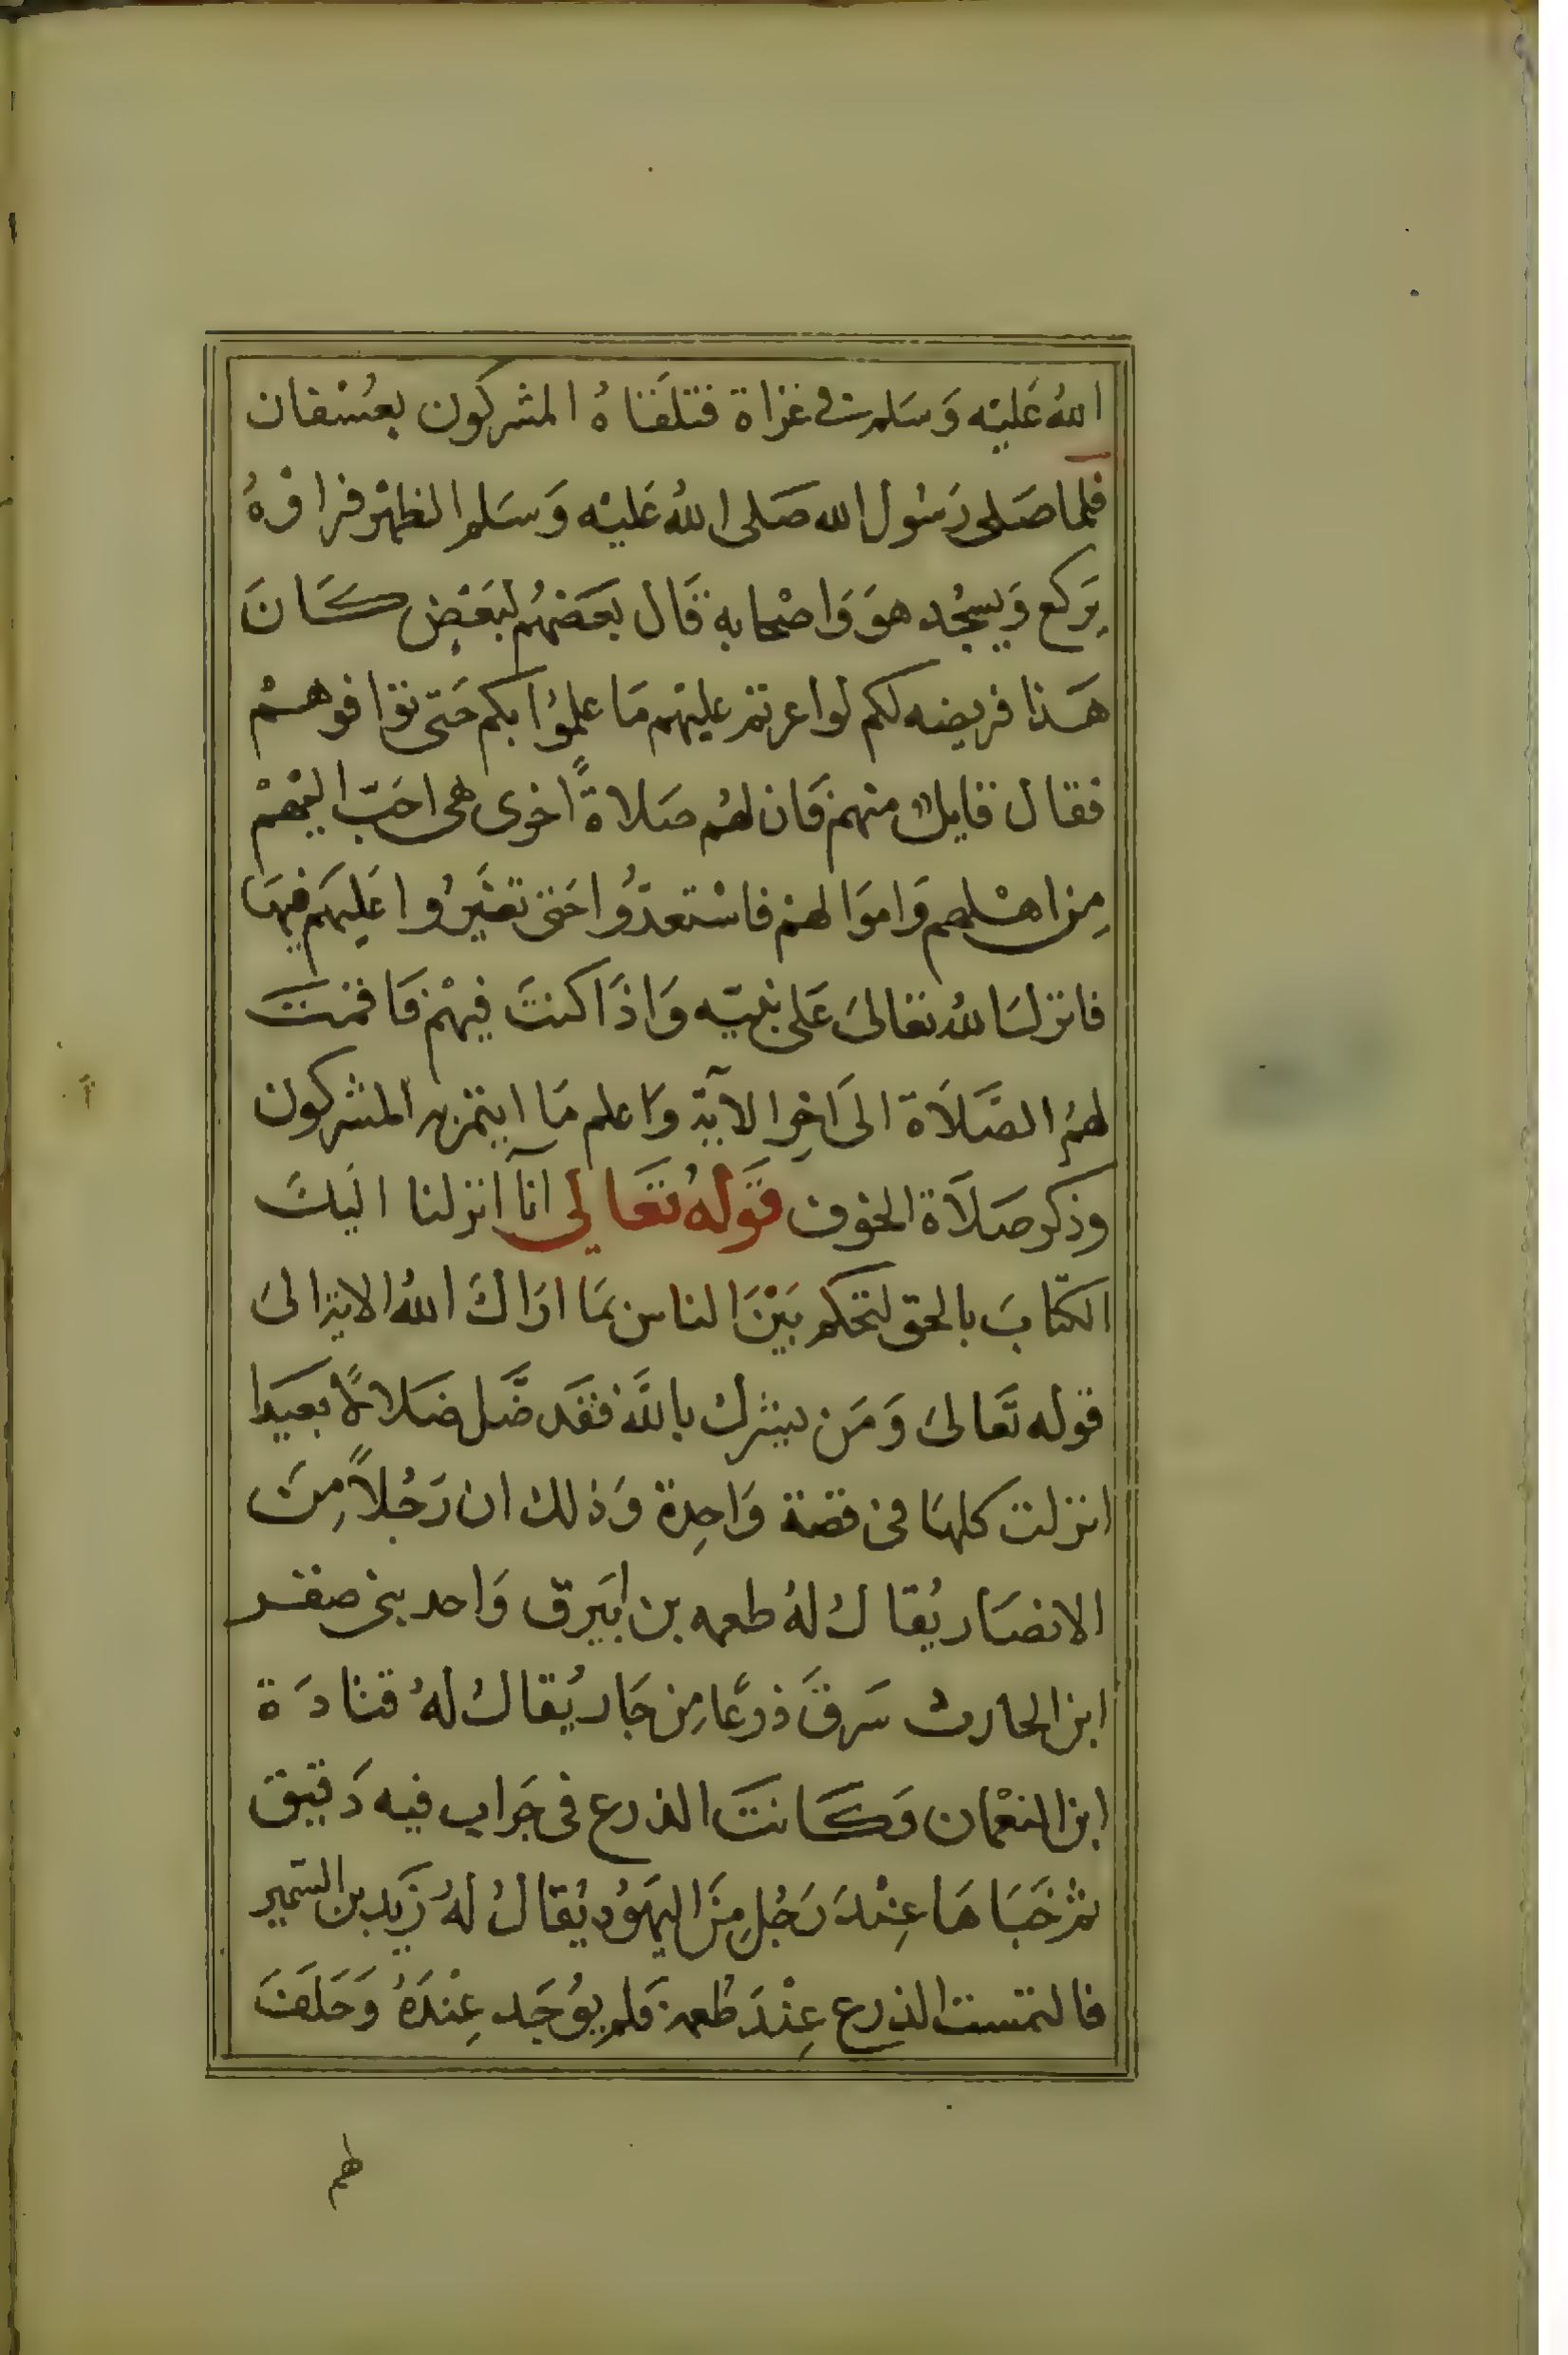 الله عَليْه وَسَلم في غزاة فتلقاهُ المشركون بعُسْفان
فلما صَلى رَسُول الله صَلى اللهُ عَليْه وَسَلم الظهْر فراوْهُ
يَركع وَيسجُد هوَ وَاصْحابه قَال بعَضهُم لبَعَضٍ كَانَ
هَذا فريضه لكم لو اعرتم عليهم مَا علموُا بكم حَتى تواقوهمْ
فقال قايلٌ منهم فَان لهُم صَلاةً اخرى هى احَبّ اليْهمْ
مِن اهْلهم وَاموَالهمْ فاسْتعدّوُا حَتى تغَيرُوا عَليهَم فيهَا
فانزلَ اللهُ تعَالىَ عَلى نبيّه وَاذَا كنتَ فيهْم فَاقمتَ
لهُم الصَّلاَة الىَ اخِر الآية واعلم مَا ايتمر به المشركون
وذكر صَلاَة الخوف قَولهُ تعَالى انآ انزلنا اليَكَ
الكتَابَ بالحق لتحكم بَيْنَ الناس بمَا ارَاكَ اللهُ الاية الىَ
قوله تَعالىَ وَمَن يشرك باللهَ فقَد ضَّل ضَلالاً بعَيدا
انزلت كلهَا فى قصة وَاحِدة وَذلك ان رَجُلاً مِنَ
الانصَار يُقالُ لهُ طعمه بن ابَيرق وَاحد بنى صفر
ابن الحارث سَرقَ ذرعًا مِن جَار يُقالُ لهُ قتادَة
ابن النعْمان وَكَانتَ الذرع فى جَراب فيه دَقيق
ثم خَبَاهَا عِنْدَ رَجُلِ مِنَ اليَهوُد يُقالُ لهُ زَيد بن السّمير
فالتمست الذرع عِنْدَ طُعمة فَلم يوُجَد عِنْدَهُ وَحَلفَ
لهم